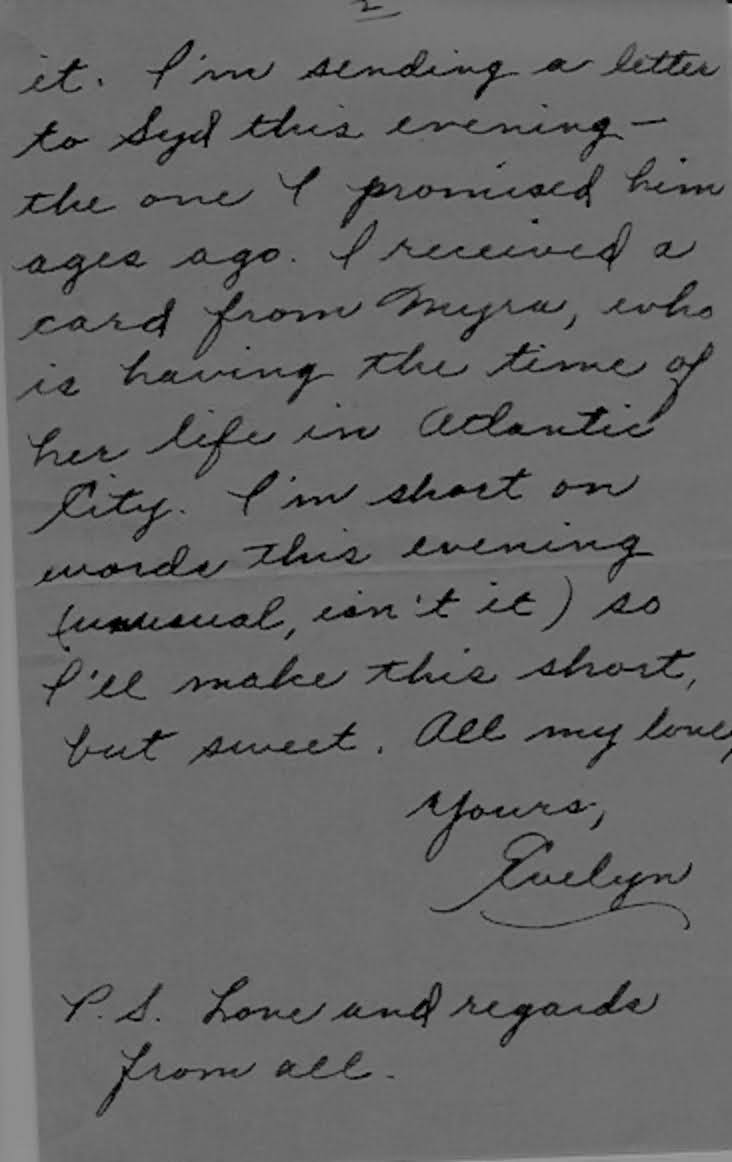 2
it. I'm sending a letter
to Syd this evening—
the one I promised him
ages ago. I received a
card from Myra, who
is having the time of
her life in Atlantic
City. I'm short on
words this evening
(unusual, isn't it) so
I'll make this short,
but sweet. All my love,
Yours,
Evelyn
P.S. Love and regards
from all.